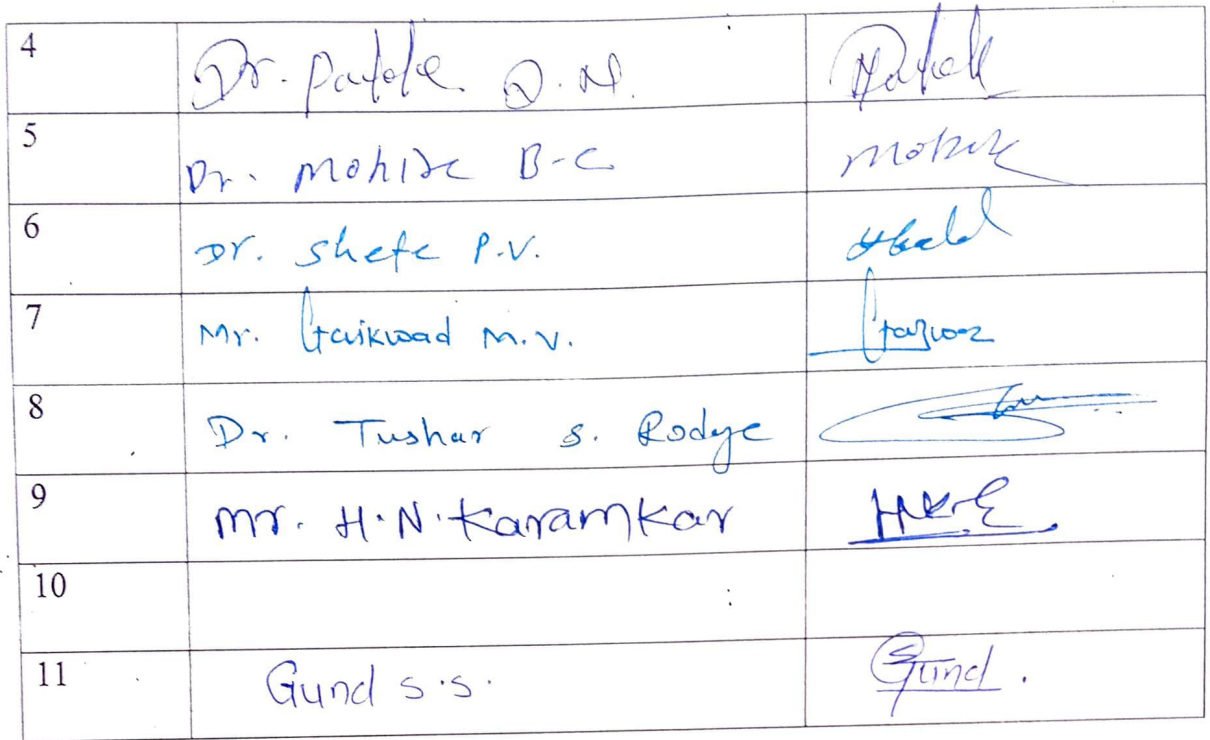 4 Dr. Patole D.N.
5 Dr. Mohire B-C Mohire
6 Dr. Shete P.V.
7 Mr. Gaikwad M.V.
8 Dr. Tushar S. Rodge
9 Mr. H.N. Karamkar
10
11 Gund S.S. Gund.